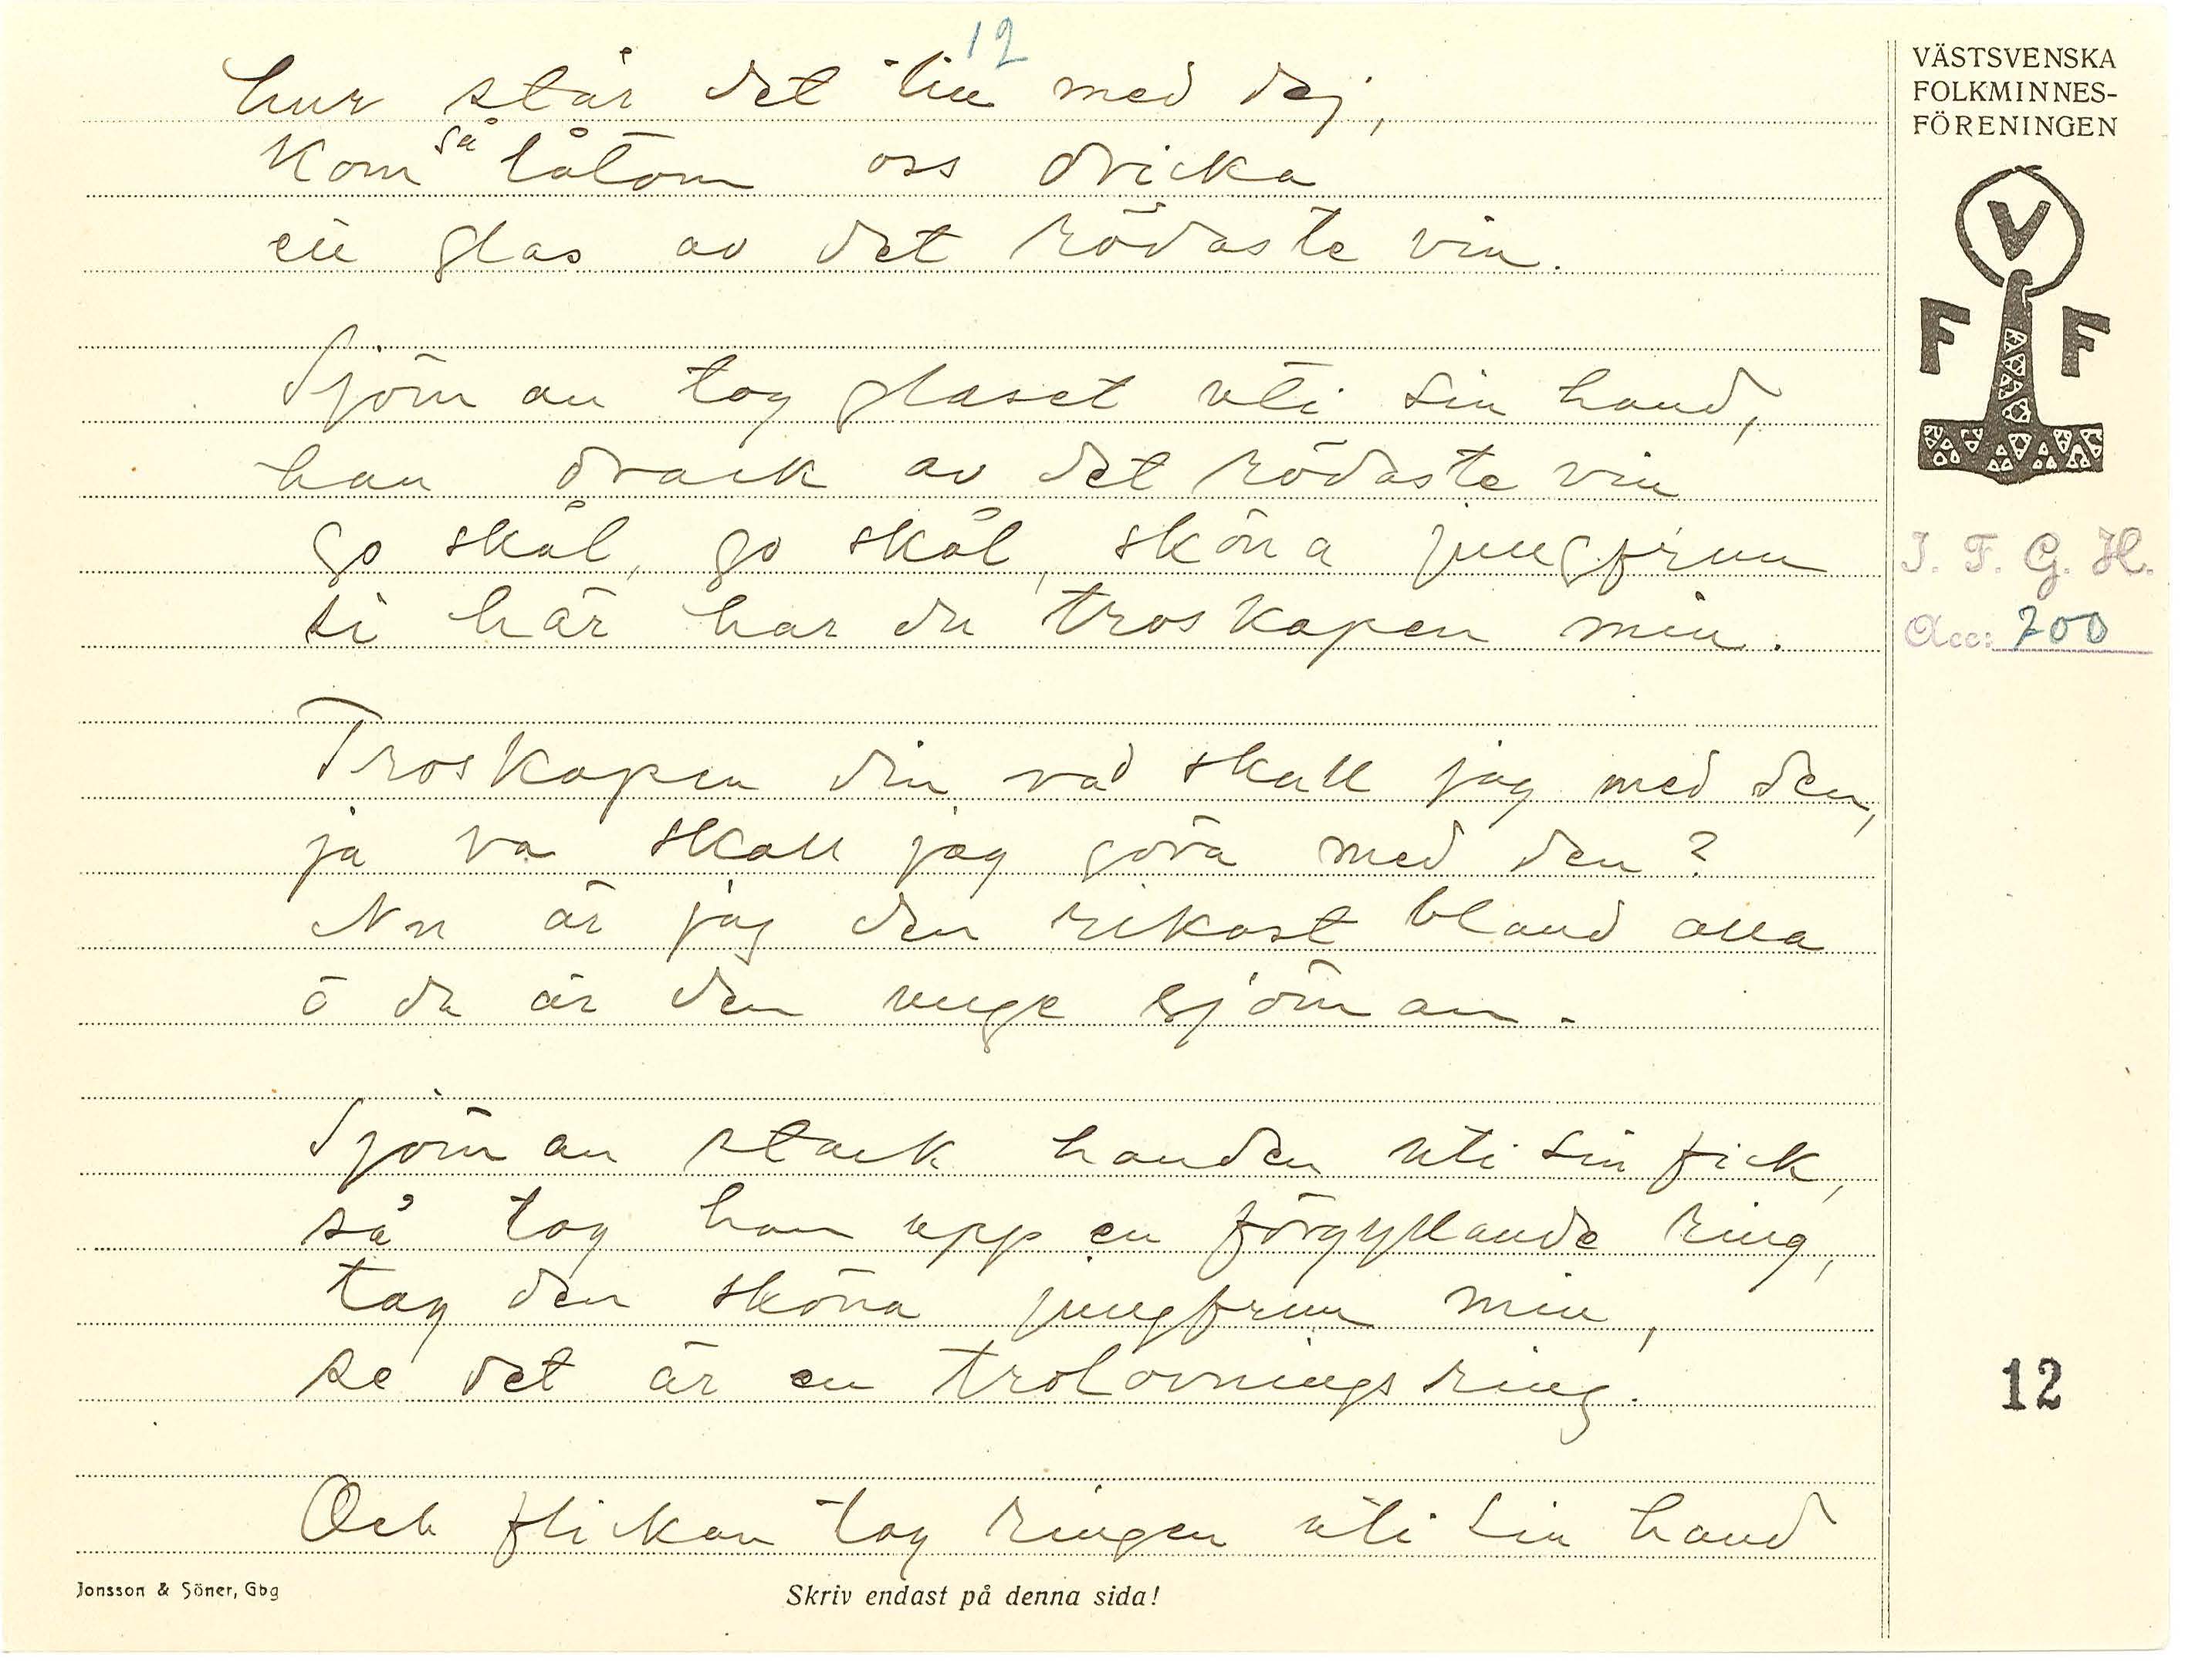 12
hur står det till med dej,
Kom så låtom oss dricka
ett glas av det rödaste vin.
Sjöman tog glaset uti sin hand,
han drack av det rödaste vin
go skål, go skål, sköna jungfrun
si här har du troskapen min.
Troskapen din vad skall jag med den,
ja va skall jag göra med den?
Nu är jag den rikast bland alla
å du är den unge sjöman.
Sjöman stack handen uti sin fick,
så tog han upp en förgyllande ring,
tag den sköna jungfrun min,
se det är en trolovningsring.
Och flickan tog ringen uti sin hand
Jonsson & Söner, Gbg
Skriv endast på denna sida!
VÄSTSVENSKA
FOLKMINNES-
FÖRENINGEN
V
F F
I. F. G. H.
Acc: 200
12